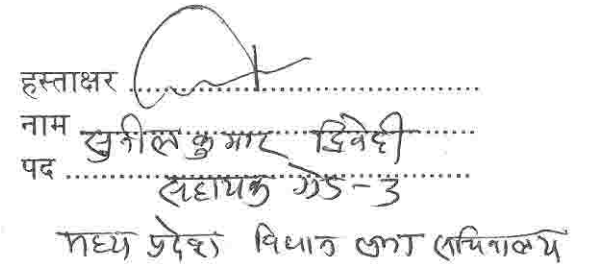 हस्ताक्षर
नाम सुनील कुमार द्विवेदी
पद सहायक ग्रेड-3
मध्य प्रदेश विधान सभा सचिवालय